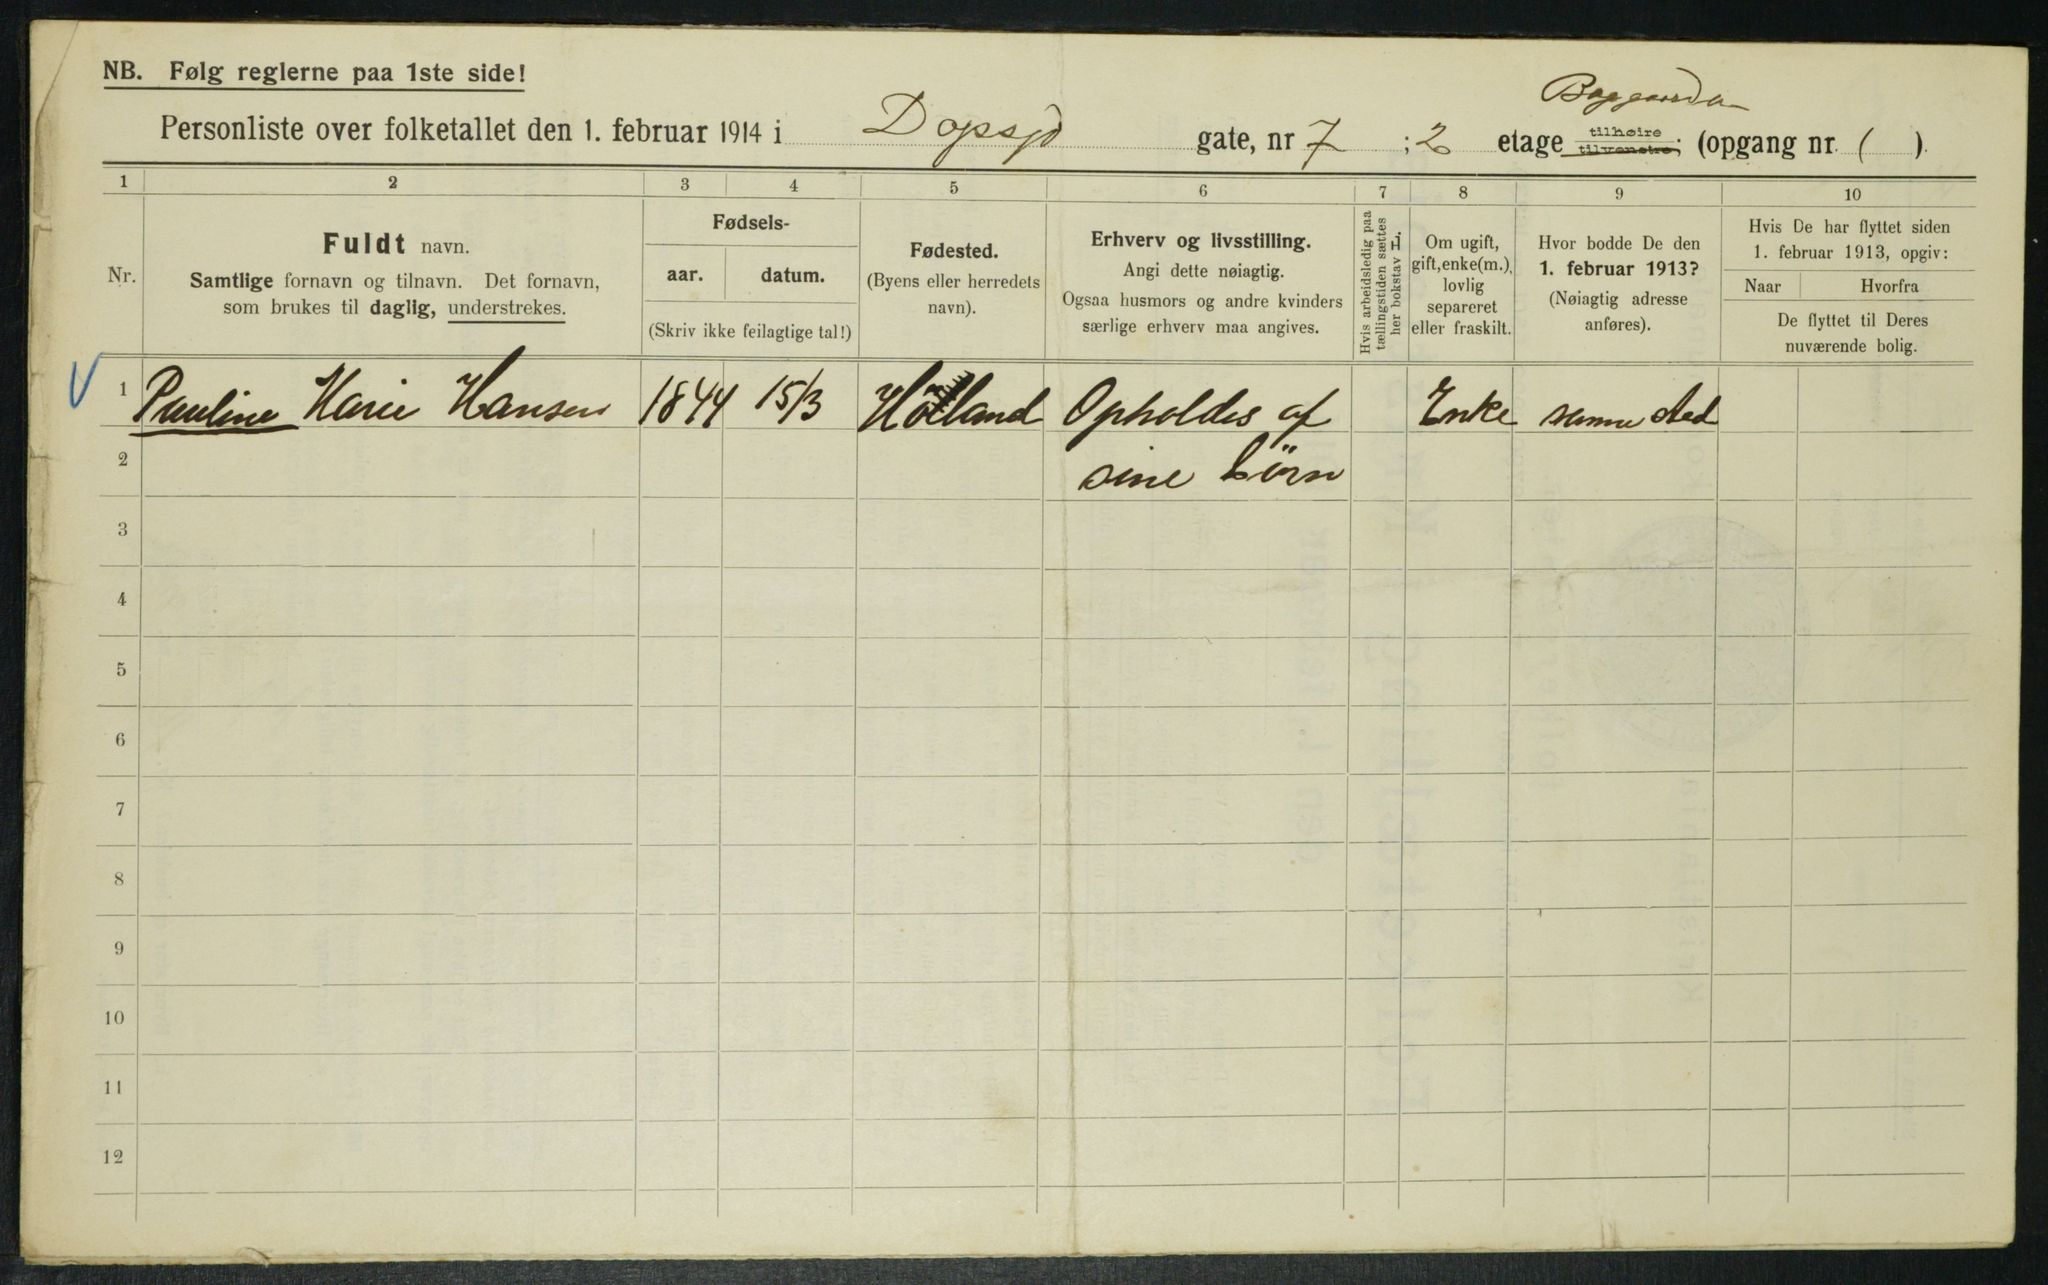 NB. Følg reglerne paa 1ste side!
Baggaarden
Personliste over folketallet den 1. februar 1914 i Dopsgd gate, nr 7 ; 2 etage tilhøire tilvenstre; (opgang nr. ( ).
1 2 3 4 5 6 7 8 9 10
Nr.
Fuldt navn.
Samtlige fornavn og tilnavn. Det fornavn,
som brukes til daglig, understrekes.
Fødsels-
aar. datum.
(Skriv ikke feilagtige tal!)
Fødested.
(Byens eller herredets
navn).
Erhverv og livsstilling.
Angi dette nøiagtig.
Ogsaa husmors og andre kvinders
særlige erhverv maa angives.
Hvis arbeidsledig paa
tællingstiden sættes
her bokstav L.
Om ugift,
gift, enke(m.),
lovlig
separeret
eller fraskilt.
Hvor bodde De den
1. februar 1913?
(Nøiagtig adresse
anføres).
Hvis De har flyttet siden
1. februar 1913, opgiv:
Naar Hvorfra
De flyttet til Deres
nuværende bolig.
1 Pauline Marie Hansen 1844 15/3 Høland Opholdes af Enke samme sted
2 sine børn
3
4
5
6
7
8
9
10
11
12